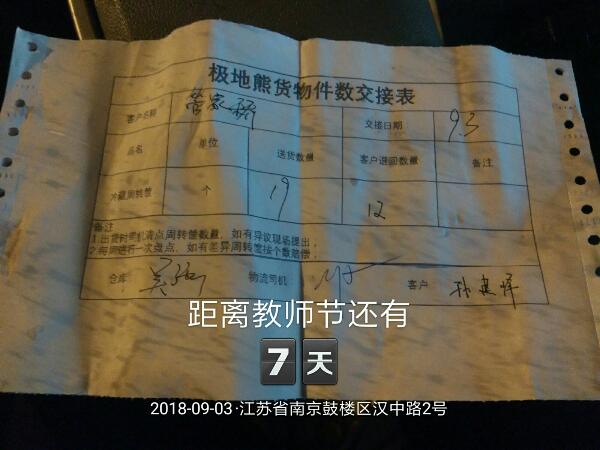 极地熊货物件数交接表
客户名称 管家桥 交接日期 9.3
品名 单位 送货数量 客户退回数量 备注
冷藏周转筐 个 19 12
备注
1.出货时司机清点周转筐数量,如有异议现场提出,
2.每周进行一次盘点,如有差异周转筐按个数赔偿,
仓库: 物流司机: 客户
距离教师节还有
7天
2018-09-03·江苏省南京鼓楼区汉中路2号